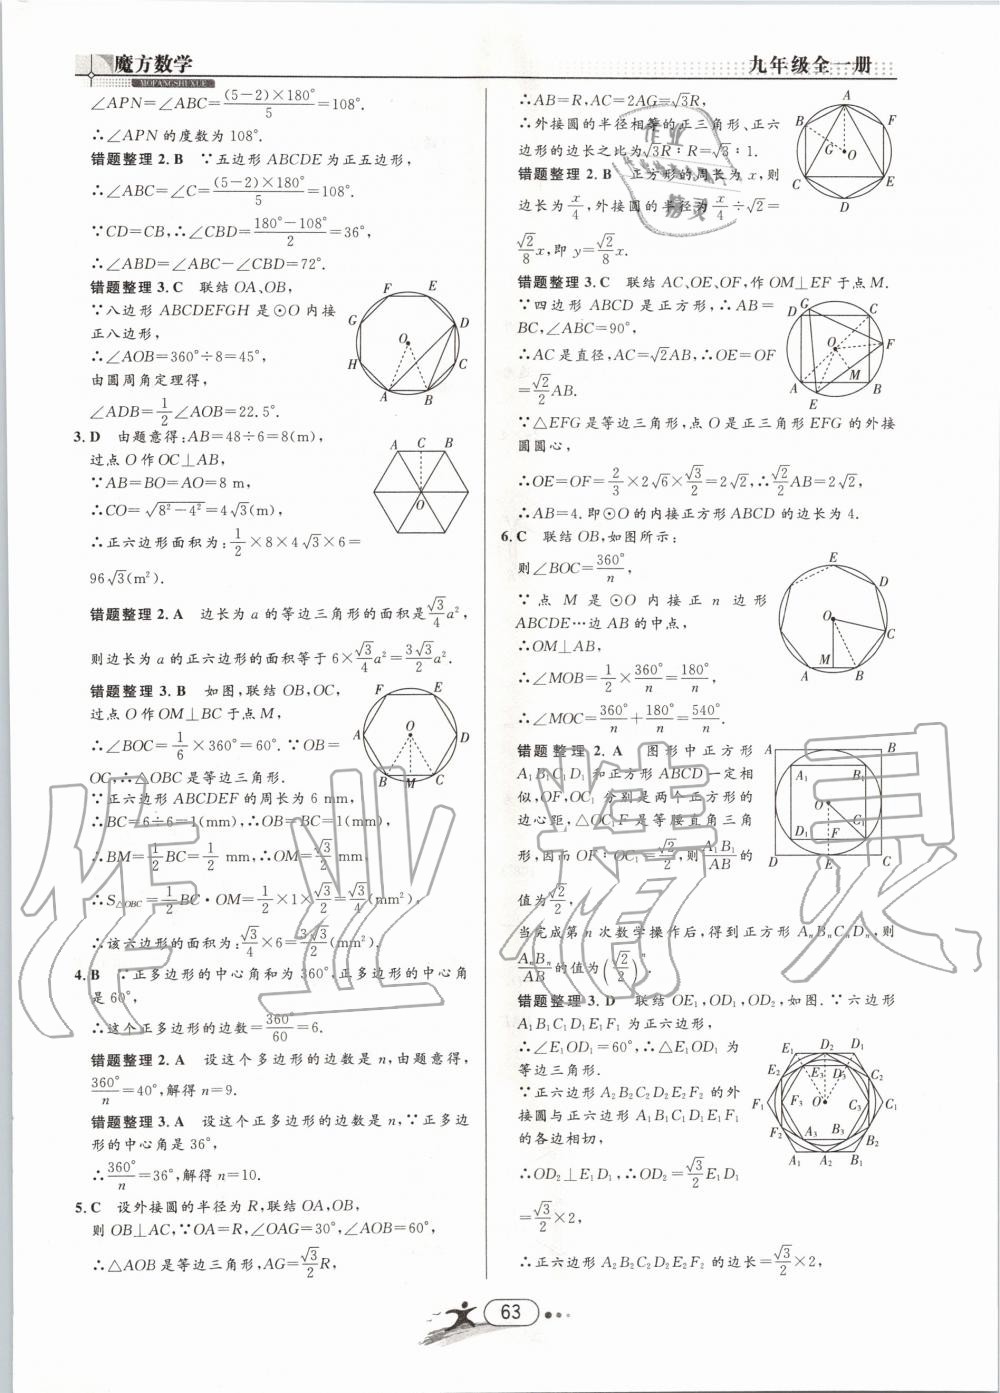 魔方数学
MOFANGSHUXUE
九年级全一册
∠APN=∠ABC=(5-2)×180°/5=108°.
∴∠APN 的度数为 108°.
错题整理 2. B ∵五边形 ABCDE 为正五边形,
∴∠ABC=∠C=(5-2)×180°/5=108°.
∵CD=CB,∴∠CBD=180°-108°/2=36°,
∴∠ABD=∠ABC-∠CBD=72°.
错题整理 3. C 联结 OA、OB,
∵八边形 ABCDEFGH 是⊙O 内接
正八边形,
∴∠AOB=360°÷8=45°,
由圆周角定理得,
∠ADB=1/2∠AOB=22.5°.
F E G D O H C A B
3. D 由题意得:AB=48÷6=8(m),
过点 O 作 OC⊥AB,
∵AB=BO=AO=8 m,
∴CO=√(8²-4²)=4√3(m),
∴正六边形面积为:1/2×8×4√3×6=
96√3(m²).
A C B O
错题整理 2. A 边长为 a 的等边三角形的面积是√3/4a²,
则边长为 a 的正六边形的面积等于 6×√3/4a²=3√3/2a².
错题整理 3. B 如图,联结 OB,OC,
过点 O 作 OM⊥BC 于点 M,
∴∠BOC=1/6×360°=60°. ∵OB=
OC,∴△OBC 是等边三角形.
∵正六边形 ABCDEF 的周长为 6 mm,
∴BC=6÷6=1(mm),∴OB=BC=1(mm),
∴BM=1/2BC=1/2 mm,∴OM=√3/2 mm,
∴S△OBC=1/2BC·OM=1/2×1×√3/2=√3/4(mm²),
∴该六边形的面积为:√3/4×6=3√3/2(mm²).
F E A O D B M C
4. B ∵正多边形的中心角和为 360°,正多边形的中心角
是 60°,
∴这个正多边形的边数=360°/60=6.
错题整理 2. A 设这个多边形的边数是 n,由题意得,
360°/n=40°,解得 n=9.
错题整理 3. A 设这个正多边形的边数是 n,∵正多边
形的中心角是 36°,
∴360°/n=36°,解得 n=10.
5. C 设外接圆的半径为 R,联结 OA,OB,
则 OB⊥AC,∵OA=R,∠OAG=30°,∠AOB=60°,
∴△AOB 是等边三角形,AG=√3/2R,
∴AB=R,AC=2AG=√3R,
∴外接圆的半径相等的正三角形、正六
边形的边长之比为√3R∶R=√3∶1.
A B F G O C E D
错题整理 2. B 正方形的周长为 x,则
边长为x/4,外接圆的半径为x/4÷√2=
√2/8x,即 y=√2/8x.
错题整理 3. C 联结 AC、OE、OF,作 OM⊥EF 于点 M.
∵四边形 ABCD 是正方形,∴AB=
BC,∠ABC=90°,
∴AC 是直径,AC=√2AB,∴OE=OF
=√2/2AB.
D G C O F M A B E
∵△EFG 是等边三角形,点 O 是正三角形 EFG 的外接
圆圆心,
∴OE=OF=2/3×2√6×√3/2=2√2,∴√2/2AB=2√2,
∴AB=4. 即⊙O 的内接正方形 ABCD 的边长为 4.
6. C 联结 OB,如图所示:
则∠BOC=360°/n,
∵点 M 是⊙O 内接正 n 边形
ABCDE…边 AB 的中点,
∴OM⊥AB,
∴∠MOB=1/2×360°/n=180°/n,
∴∠MOC=360°/n+180°/n=540°/n.
E D O C M A B
错题整理 2. A 图形中正方形
A₁B₁C₁D₁ 和正方形 ABCD 一定相
似,OF,OC₁ 分别是两个正方形的
边心距,△OC₁F 是等腰直角三角
形,因而 OF∶OC₁=√2/2,则A₁B₁/AB的
值为√2/2,
当完成第 n 次数学操作后,得到正方形 AₙBₙCₙDₙ,则
AₙBₙ/AB的值为(√2/2)ⁿ.
A B A₁ B₁ O D₁ F C₁ D E C
错题整理 3. D 联结 OE₁,OD₁,OD₂,如图. ∵六边形
A₁B₁C₁D₁E₁F₁ 为正六边形,
∴∠E₁OD₁=60°,∴△E₁OD₁ 为
等边三角形.
∵正六边形 A₂B₂C₂D₂E₂F₂ 的外
接圆与正六边形 A₁B₁C₁D₁E₁F₁
的各边相切,
∴OD₂⊥E₁D₁,∴OD₂=√3/2E₁D₁
=√3/2×2,
∴正六边形 A₂B₂C₂D₂E₂F₂ 的边长=√3/2×2,
E₁ D₂ D₁ E₂ E₃ D₃ C₂ F₁ F₃ O C₃ C₁ F₂ A₃ B₃ B₂ A₁ A₂ B₁
63
作业精灵